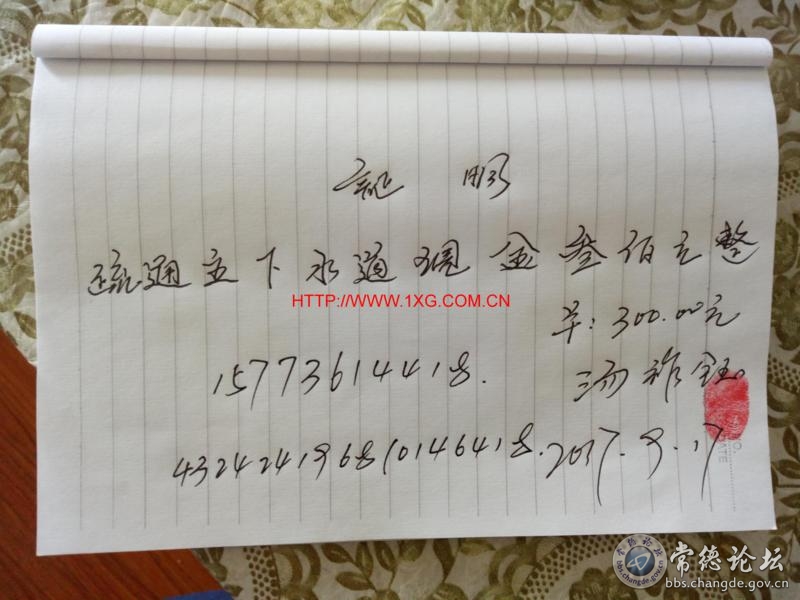 证明
疏通主下水道现金叁佰元整
HTTP://WWW.1XG.COM.CN
¥:300.00元
15773614418.
汤祚钰
432424196810146418.
2017.9.17
NO.
DATE
常德论坛
常德论坛
bbs.changde.gov.cn